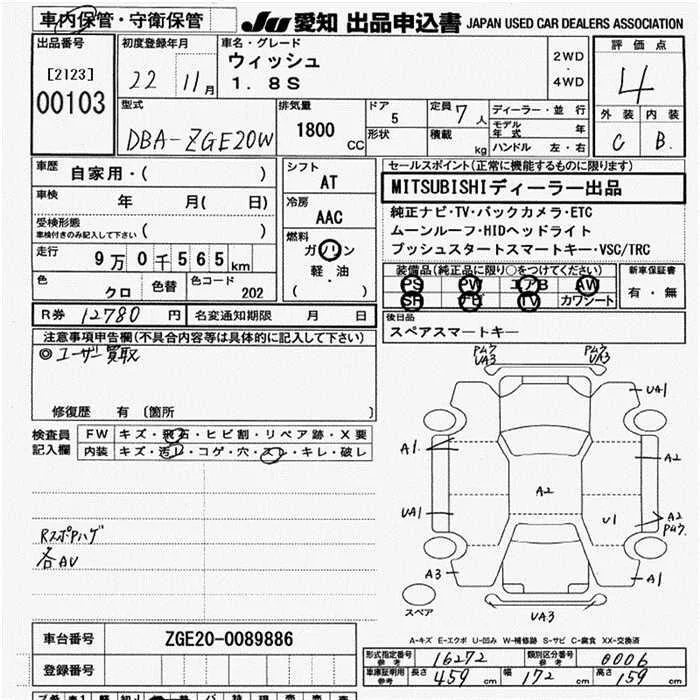 車内保管・守衛保管
JU 愛知 出品申込書 JAPAN USED CAR DEALERS ASSOCIATION
出品番号
[2123]
00103
初度登録年月
22 11月
車名・グレード
ウィッシュ
1.8S
2WD
・
4WD
評価点
4
外装 内装
C B
型式
DBA-ZGE20W
排気量
1800 CC
ドア
5
形状
定員 7人
積載 kg
ディーラー・並行
モデル年式 年
ハンドル 左・右
車歴 自家用・( )
車検 年 月( 日)
受検形態
車検付きのみ記入して下さい ( )
走行 9万0千565km
色 クロ 色替 色コード 202
シフト
AT
冷房
AAC
燃料
ガソリン
軽・油
( )
セールスポイント(正常に機能するものに限ります)
MITSUBISHIディーラー出品
純正ナビ・TV・バックカメラ・ETC
ムーンルーフ・HIDヘッドライト
プッシュスタートスマートキー・VSC/TRC
装備品(純正品に限り○をつけてください)
PS PW エアB AW
SR ナビ TV カワシート
新車保証書
有・無
R券 12780円 名変通知期限 月 日
後日品
スペアスマートキー
注意事項申告欄(不具合内容等は具体的に記入して下さい)
◎ユーザー買取
修復歴 有 〔箇所 〕
検査員記入欄
FW キズ・飛石・ヒビ割・リペア跡・X要
内装 キズ・汚レ・コゲ・穴・スレ・キレ・破レ
RスポPハゲ
各AU
Pムラ
UA3
Pムラ
UA3
UA1
A1
A2
A2
UA1
U1
A2
Pムラ
A3
A1
スペア
UA3
A-キズ E-エクボ U-凹み W-補修跡 S-サビ C-腐食 XX-交換済
車台番号 ZGE20-0089886
登録番号
形式指定番号 参考 16272 類別区分番号 参考 0006
車庫証明用 参考 長さ 459cm 幅 172cm 高さ 159cm